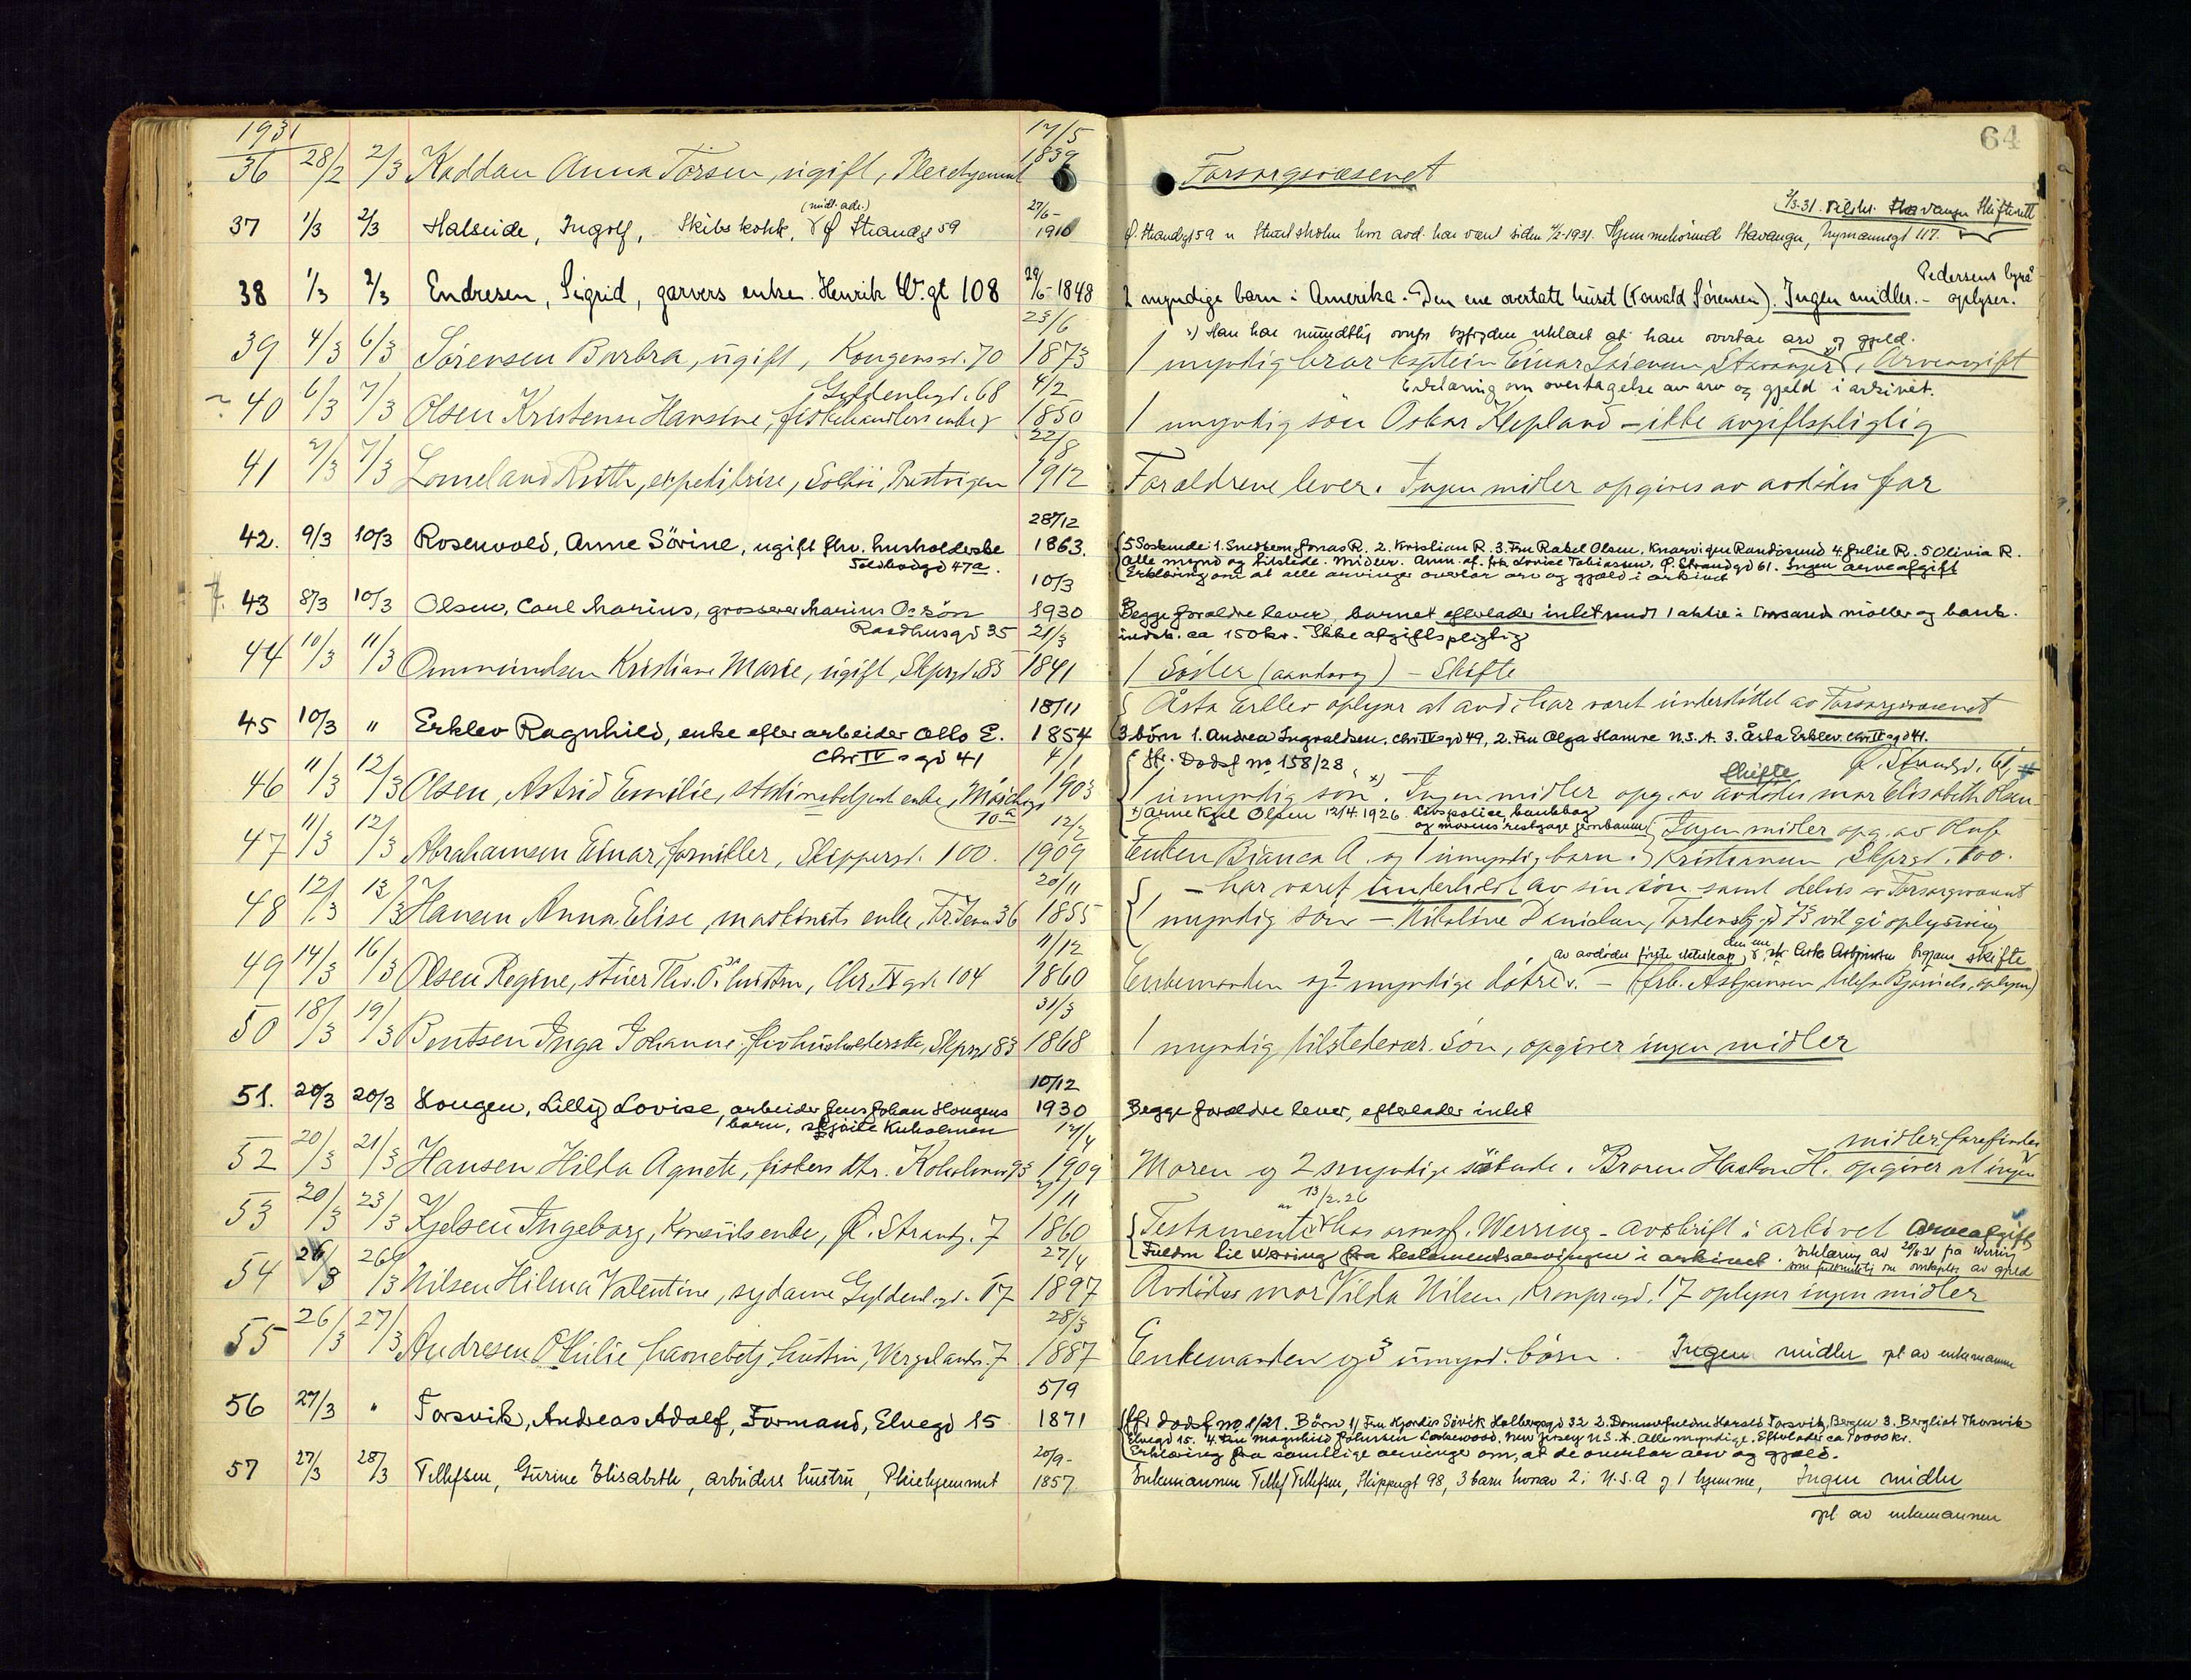 1931
64
36 28/2 2/3 Kaddan Anna Torsen, ugift, Pleiehjemmet 17/5 1839
Forsorgsvæsenet
37 1/3 2/3 Halseide, Ingolf, Skibskokk, (midl. adr.) Ø Strandgt 59 27/6- 1910
2/3-31. Stavanger Skifterett
Ø. Strandgt 59 hvor avd. har vært siden 1931. Hjemmehørende Stavanger, 117.
38 1/3 2/3 Endresen, Sigrid, garvers enke. Henrik W.gt 108 29/6-1848
2 myndige barn i Amerika. Den ene overtatt huset (Torvald Sørensen). Ingen midler. - Pedersens byrå oplyser.
39 4/3 6/3 Sørensen Barbra, ugift, Kongensgd. 70 23/6 1873
x) Han har mundtlig overfor byfogden uklart at han overtar arv og gjeld.
1 myndig bror kaptein Einar Sørensen Stavanger, Arveavgift
Erklæring om overtagelse av arv og gjeld i arkivet.
40 6/3 7/3 Olsen Kristense Hansine, fiskehandlers enke, Gyldenl.gd. 68 4/2 1850
1 myndig søn Oskar Klepland - ikke avgiftspligtig
41 7/3 7/3 Lomeland Ruth, expeditrise, Solhøi, Prestvigen 22/8 1912
Forældrene lever. Ingen midler opgives av avdødes far
42. 9/3 10/3 Rosenvold, Anne Sørine, ugift fhv. husholderske 28/12 1863.
Toldbodgd 47a.
5 Søskende 1. Snedkem Jonas R. 2. Kristian R. 3. Fru Rakel Olsen, Knarvigen Randøsund 4. Julie R. 5 Olivia R.
Alle mynd og tilstede. Midler. Anm. af. frk Lovise Tobiassen, Ø. Strandgd 61. Ingen arveafgift
Erklæring om at alle arvinger overtar arv og gjæld i arkivet
43 8/3 10/3 Olsen, Carl Marius, grosserer Marius O.s søn 10/3 1930
Raadhusgd 35
Begge forældre lever, barnet efterlader intet undt 1 aktie i møller og bank-
indsk. ca 150 kr. Ikke afgiftspligtig
44 10/3 11/3 Ommundsen Kristiane Marie, ugift, Skprgd. 83 21/3 1841
1 Søster (aandsvag) - Skifte
45 10/3 " Erklev Ragnhild, enke efter arbeider Otto E. 18/11 1854
Chr IV s gd 41
Åsta Erklev oplyser at avd. har været understøttet av Forsorgsvæsenet
3 børn 1. Andrea Ingvaldsen, Chr IV s gd 49, 2. Fru Olga Hamre U.S.A. 3. Åsta Erklev Chr IV s gd 41.
46 11/3 12/3 Olsen, Astrid Emilie, enke, 10a 4/1 1903
Jfr. Dødsf no 158/28 Ø. Strandgd. 61
1 umyndig søn x). Ingen midler opg. av avdødes mor Elisabeth Olsen Skifte
x) Arne Kjel Olsen 12/4 1926. Livspolice, bankbog
47 11/3 12/3 Abrahamsen Einar, formiller, Skippergd. 100. 12/2 1909
Enken Bianca A. og 1 umyndig barn. Ingen midler opg. av Oluf Kristiansen Skprgd. 100.
48 12/3 13/3 Hansen Anna Elise, maskinists enke, 36 20/11 1855
- har været underholdt av sin søn samt delvis av Forsorgsvæsenet
1 myndig søn - Nikoline Danielsen, Tordenskj.gd 73 vil gi oplysning
49 14/3 16/3 Olsen Regine, stuer Thv. O.s hustru, Chr. IV gd. 104 11/12 1860
av avdødes første ekteskap, den ene begjærer skifte
Enkemanden og 2 myndige døtre. - (frk. Asbjørnsen oplyser)
50 18/3 19/3 Bentsen Inga Johanne, fhv husholderske, Skprgd 83 31/3 1868
1 myndig tilstedevær. søn, opgiver ingen midler
51. 20/3 20/3 Hougen, Lilly Lovise, arbeider Jens Johan Hougens 10/12 1930
barn, Kuholmen
Begge forældre lever, efterlader intet
52 20/3 21/3 Hansen Hilda Agnete, fiskers dtr. 17/4 1909
Moren og 2 myndige søskende. Broren Haakon H. opgiver at ingen midler forefindes
53 20/3 23/3 Kjelsen Ingeborg, Konsuls enke, Ø. Strandg. 7 2/11 1860
Testamente av 13/2.26 hos ovrsf. Werring - avskrift i arkivet Arveafgift
Fuldm til Werring fra testamentsarvingen i arkivet. Erklæring av fra Werring
54 26/3 26/3 Nilsen Hilma Valentine, sydame Gyldenl.gd. 17 27/4 1897
Avdødes mor Vilda Nilsen, Kronpr.gd. 17 oplyser ingen midler
55 26/3 27/3 Andresen Othilie havnebetj. hustru, Wergelandsg. 7 28/3 1887
Enkemanden og 3 umynd. børn. Ingen midler opl av enkemannen
56 27/3 " Torsvik, Andreas Adolf, Formand, Elvegd 15 5/9 1871
Jfr dødsf no 1/21. Børn 1) Fru Hjørdis Søvik Holbergsgd 32 2. Harald Torsvik, Bergen 3. Bergliot Thorsvik
Elvegd 15. 4. Fru Magnhild Lakewood, New Jersey U.S.A. Alle myndige. Efterlader ca 10000 kr.
Erklæring fra samtlige arvinge om, at de overtar arv og gjæld.
57 27/3 28/3 Tellefsen, Gurine Elisabeth, arbeiders hustru, Pleiehjemmet 20/9- 1857
Enkemannen Tellef Tellefsen, Skippergt 98, 3 barn hvorav 2 i U.S.A og 1 hjemme, Ingen midler
opl av enkemannen